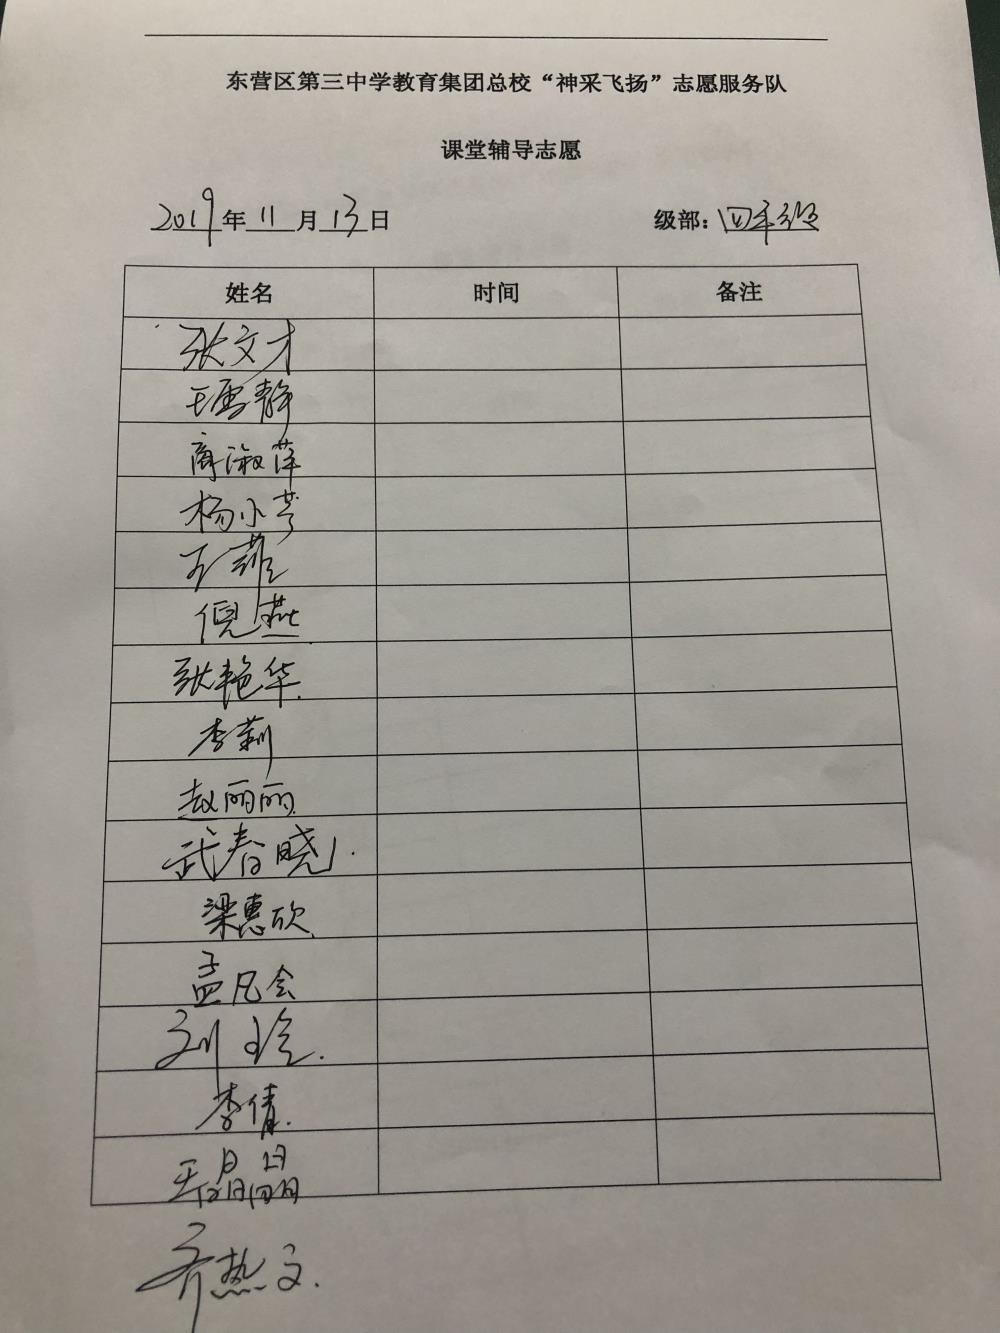 东营区第三中学教育集团总校“神采飞扬”志愿服务队
课堂辅导志愿
2019年11月13日 级部：四年级
姓名 时间 备注
张文才
王雪静
商淑萍
杨小芹
王菲
倪燕
张艳华
李莉
赵丽丽
武春晓
梁惠欣
孟凡会
刘玲
李倩
王晶晶
齐热文